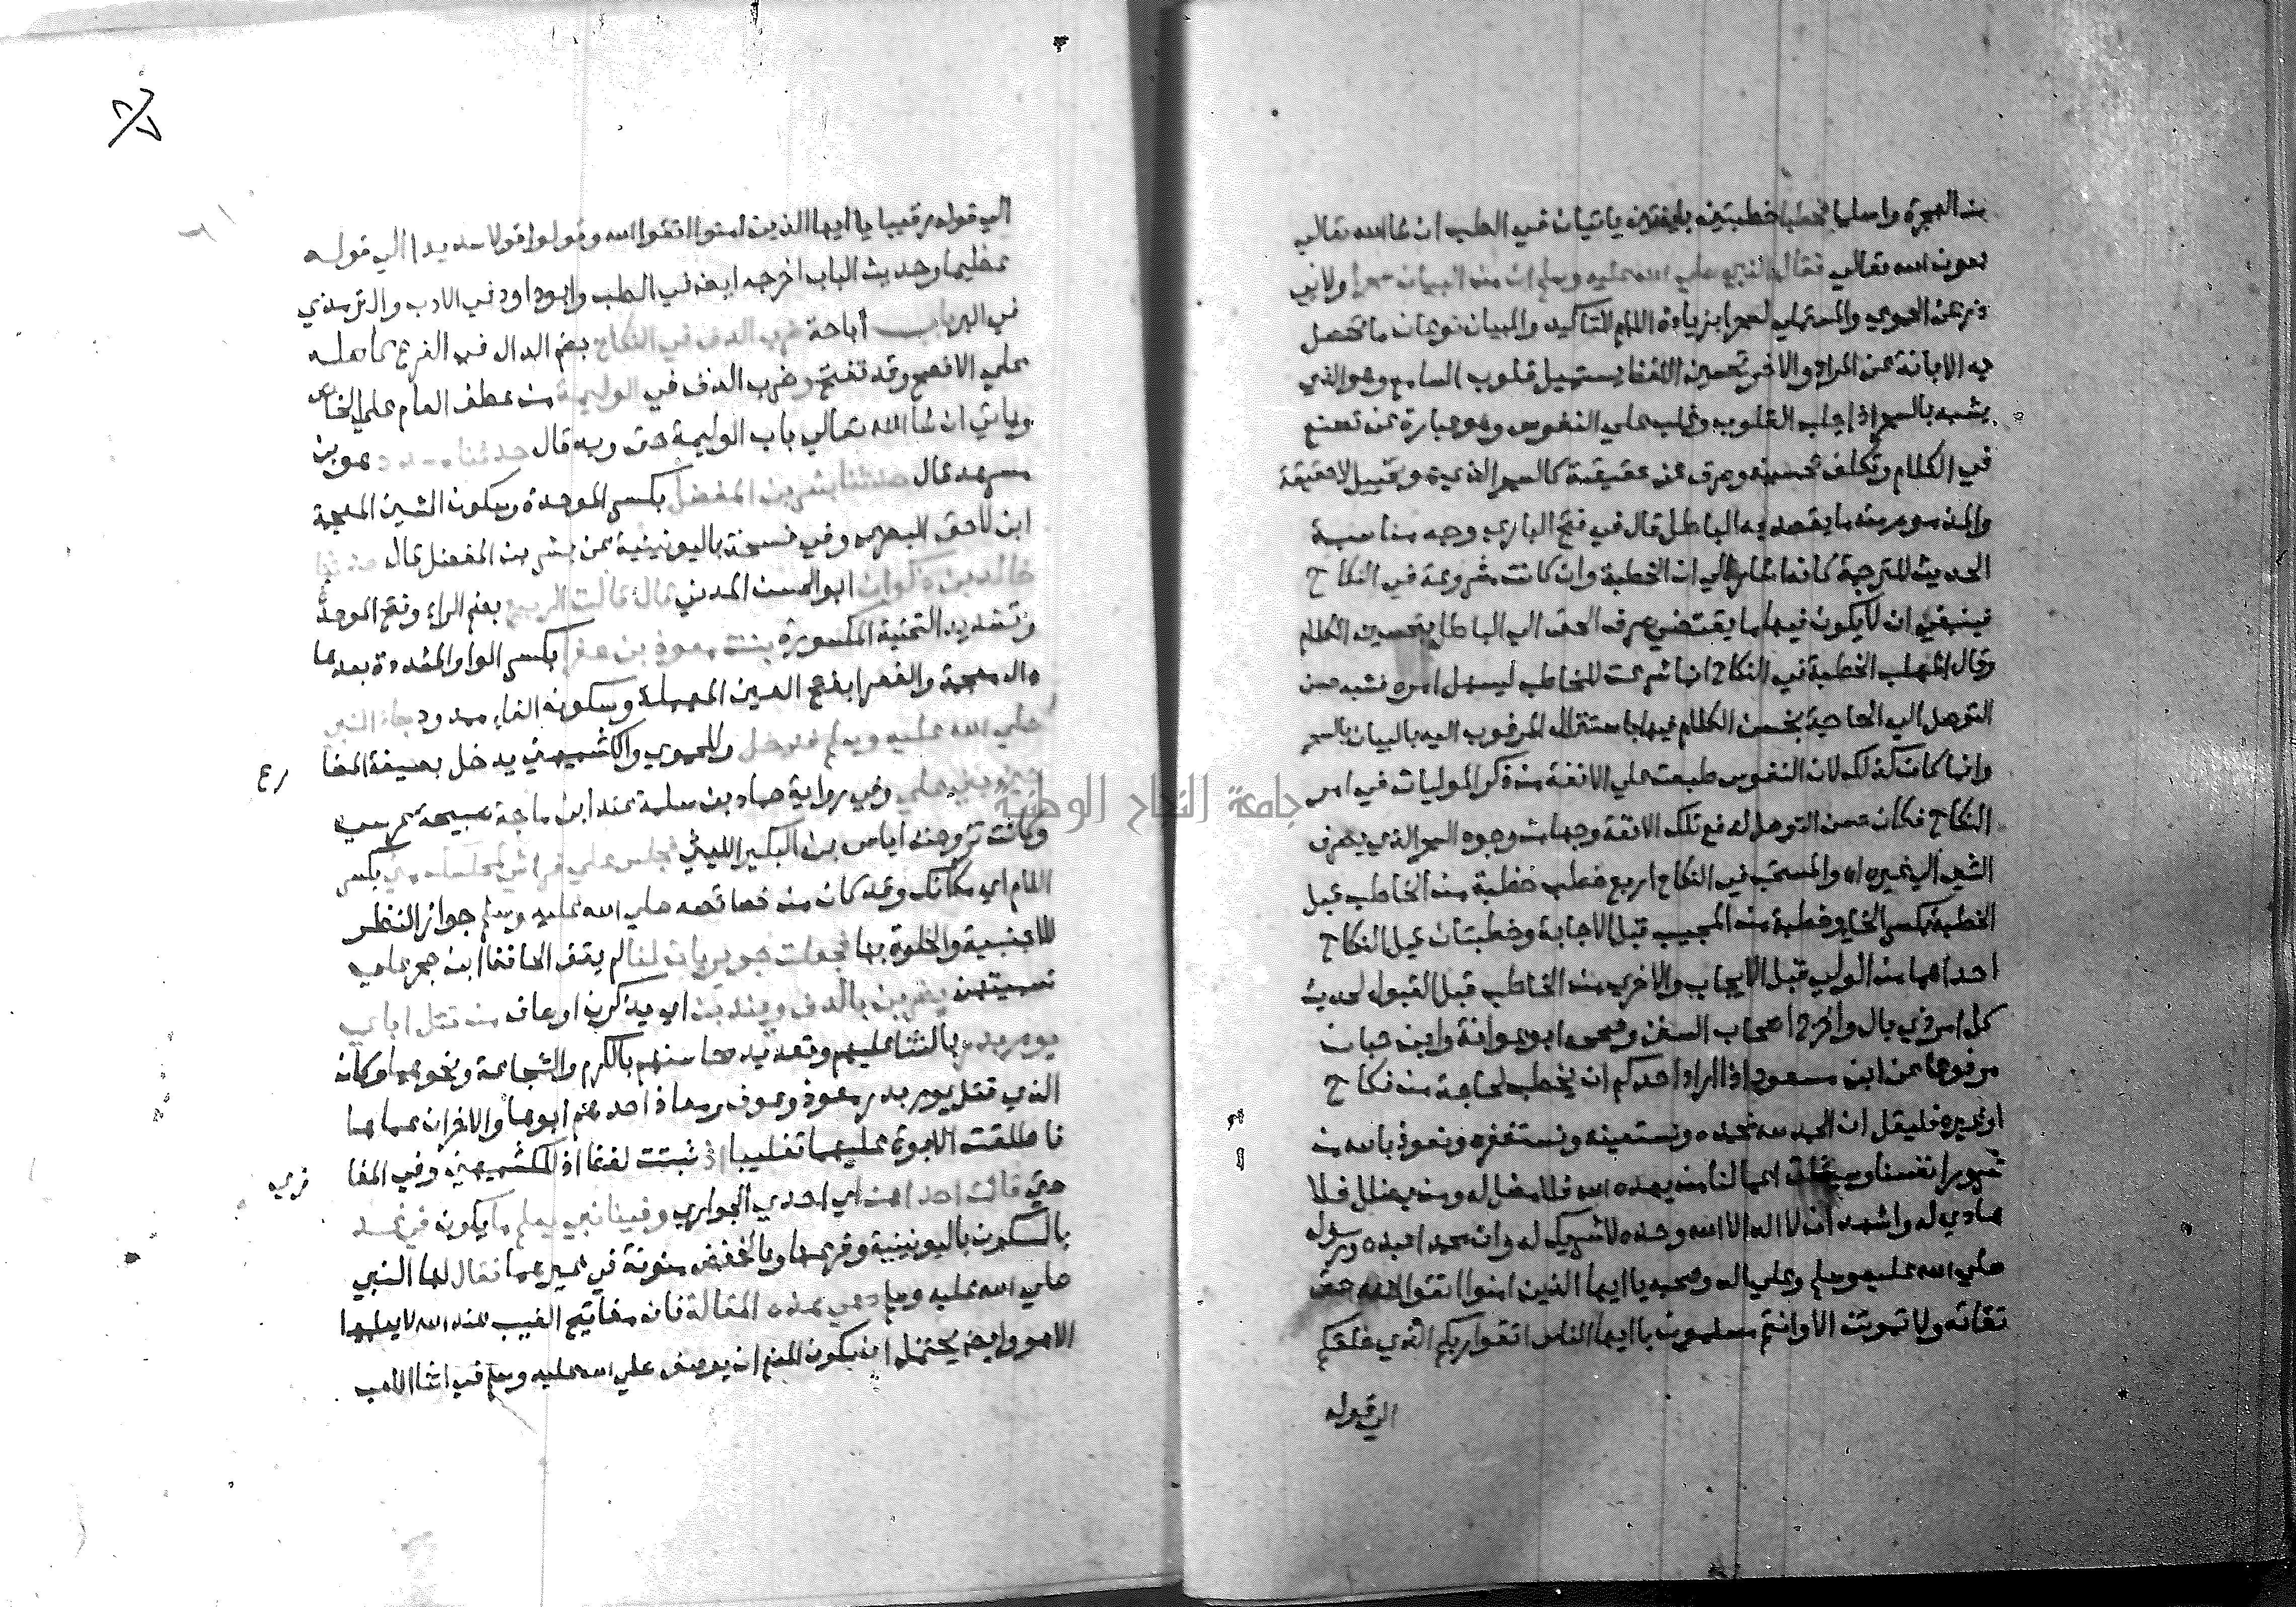 من الهجرة واسلما فخطبا خطبتين بليغتين ياتيان في الطب ان شا الله تعالي
بعون الله تعالي فقال النبي صلي الله عليه وسلم ان من البيان سحرا ولابي
ذر عن الحموي والمستملي لسحرا بزيادة اللام للتاكيد والبيان نوعان ما تحصل
به الابانة عن المراد والاخر تحسين اللفظ يستميل قلوب السامع وهو الذي
يشبه بالسحر اذا جلب القلوب وغلب علي النفوس وهو عبارة عن تصنع
في الكلام وتكلف تحسينه وصرف عن حقيقته كالسحر الذي هو تخييل لا حقيقة
والمذموم منه ما يقصد به الباطل قال في فتح الباري وجه مناسبة
الحديث للترجمة كانه اشار الي ان الخطبة وان كانت مشروعة في النكاح
فينبغي ان لا يكون فيها ما يقتضي صرف الحق الي الباطل بتحسين الكلام
وقال المهلب الخطبة في النكاح انما شرعت للخاطب ليسهل امره فشبه حسن
التوصل الي الحاجة بحسن الكلام فيها باستنزال المرغوب اليه بالبيان بالسحر
وانما كان كذلك لان النفوس طبعت علي الانفة من ذكر الموليات في امر
النكاح فكان حسن التوصل لدفع تلك الانفة وجها من وجوه السحر الذي يصرف
الشي الي غيره اه والمستحب في النكاح اربع خطب خطبة من الخاطب قبل
الخطبة بكسر الخا وخطبة من المجيب قبل الاجابة وخطبتان قبل النكاح
احداهما من الولي قبل الايجاب والاخري من الخاطب قبل القبول لحديث
كل امر ذي بال واخرج اصحاب السنن وصححه ابو عوانة وابن حبان
مرفوعا عن ابن مسعود اذا اراد احدكم ان يخطب لحاجة من نكاح
او غيره فليقل ان الحمد لله نحمده ونستعينه ونستغفره ونعوذ بالله من
شرور انفسنا وسيئات اعمالنا من يهده الله فلا مضل له ومن يضلل فلا
هادي له واشهد ان لا اله الا الله وحده لا شريك له وان محمدا عبده ورسوله
صلي الله عليه وسلم وعلي اله وصحبه يا ايها الذين امنوا اتقوا الله حق
تقاته ولا تموتن الا وانتم مسلمون يا ايها الناس اتقوا ربكم الذي خلقكم
الي قوله
الي قوله رقيبا يا ايها الذين امنوا اتقوا الله وقولوا قولا سديدا الي قوله
عظيما وحديث الباب اخرجه ايضا في الطب وابو داود في الادب والترمذي
في البر باب اباحة ضرب الدف في النكاح بضم الدال في الفرع كاصله
علي الافصح وقد تفتح وضرب الدف في الوليمة من عطف العام علي الخاص
وياتي ان شا الله تعالي باب الوليمة حق وبه قال حدثنا مسدد هو بن
مسرهد قال حدثنا بشر بن المفضل بكسر الموحدة وسكون الشين المعجمة
ابن لاحق البصري وفي نسخة باليونينية عن بشر بن المفضل قال حدثنا
خالد بن ذكوان ابو الحسن المدني قال قالت الربيع بضم الراء وفتح الموحدة
وتشديد التحتية المكسورة بنت معوذ بن عفرا بكسر الواو المشددة بعدها
ذال معجمة والعفرا بفتح العين المهملة وسكون الفاء ممدود جاء النبي
صلي الله عليه وسلم فدخل وللحموي والكشميهني يدخل بصيغة المضا
رع
حين بني علي وفي رواية حماد بن سلمة عند ابن ماجة صبيحة عرسي
وكانت تزوجت اياس بن البكير الليثي فجلس علي فراشي كمجلسك مني بكسر
اللام اي مكانك وقد كان من خصائصه صلي الله عليه وسلم جواز النظر
للاجنبية والخلوة بها فجعلت جويريات لنا لم يقف الحافظ ابن حجر علي
تسميتهن يضربن بالدف ويندبن اي يذكرن اوصاف من قتل من اباي
يوم بدر بالثنا عليهم وتعديد محاسنهم بالكرم والشجاعة ونحوهما وكان
الذي قتل يوم بدر معوذ وعوف ومعاذ احدهم ابوها والاخران عماها
فاطلقت الابوة عليهما تغليبا اذ ثبتت لفظ اذ للكشميهني وفي المغا
زي
حتي قالت احداهن اي احدي الجواري وفينا نبي يعلم ما يكون في غد
بالسكون باليونينية وفرعها وبالخفض منونة في غيرهما فقال لها النبي
صلي الله عليه وسلم دعي هذه المقالة فان مفاتيح الغيب عند الله لا يعلمها
الا هو وايضا يحتمل ان يكون المنع ان يوصف صلي الله عليه وسلم في اثنا اللعب
جامعة النجاح الوطنية